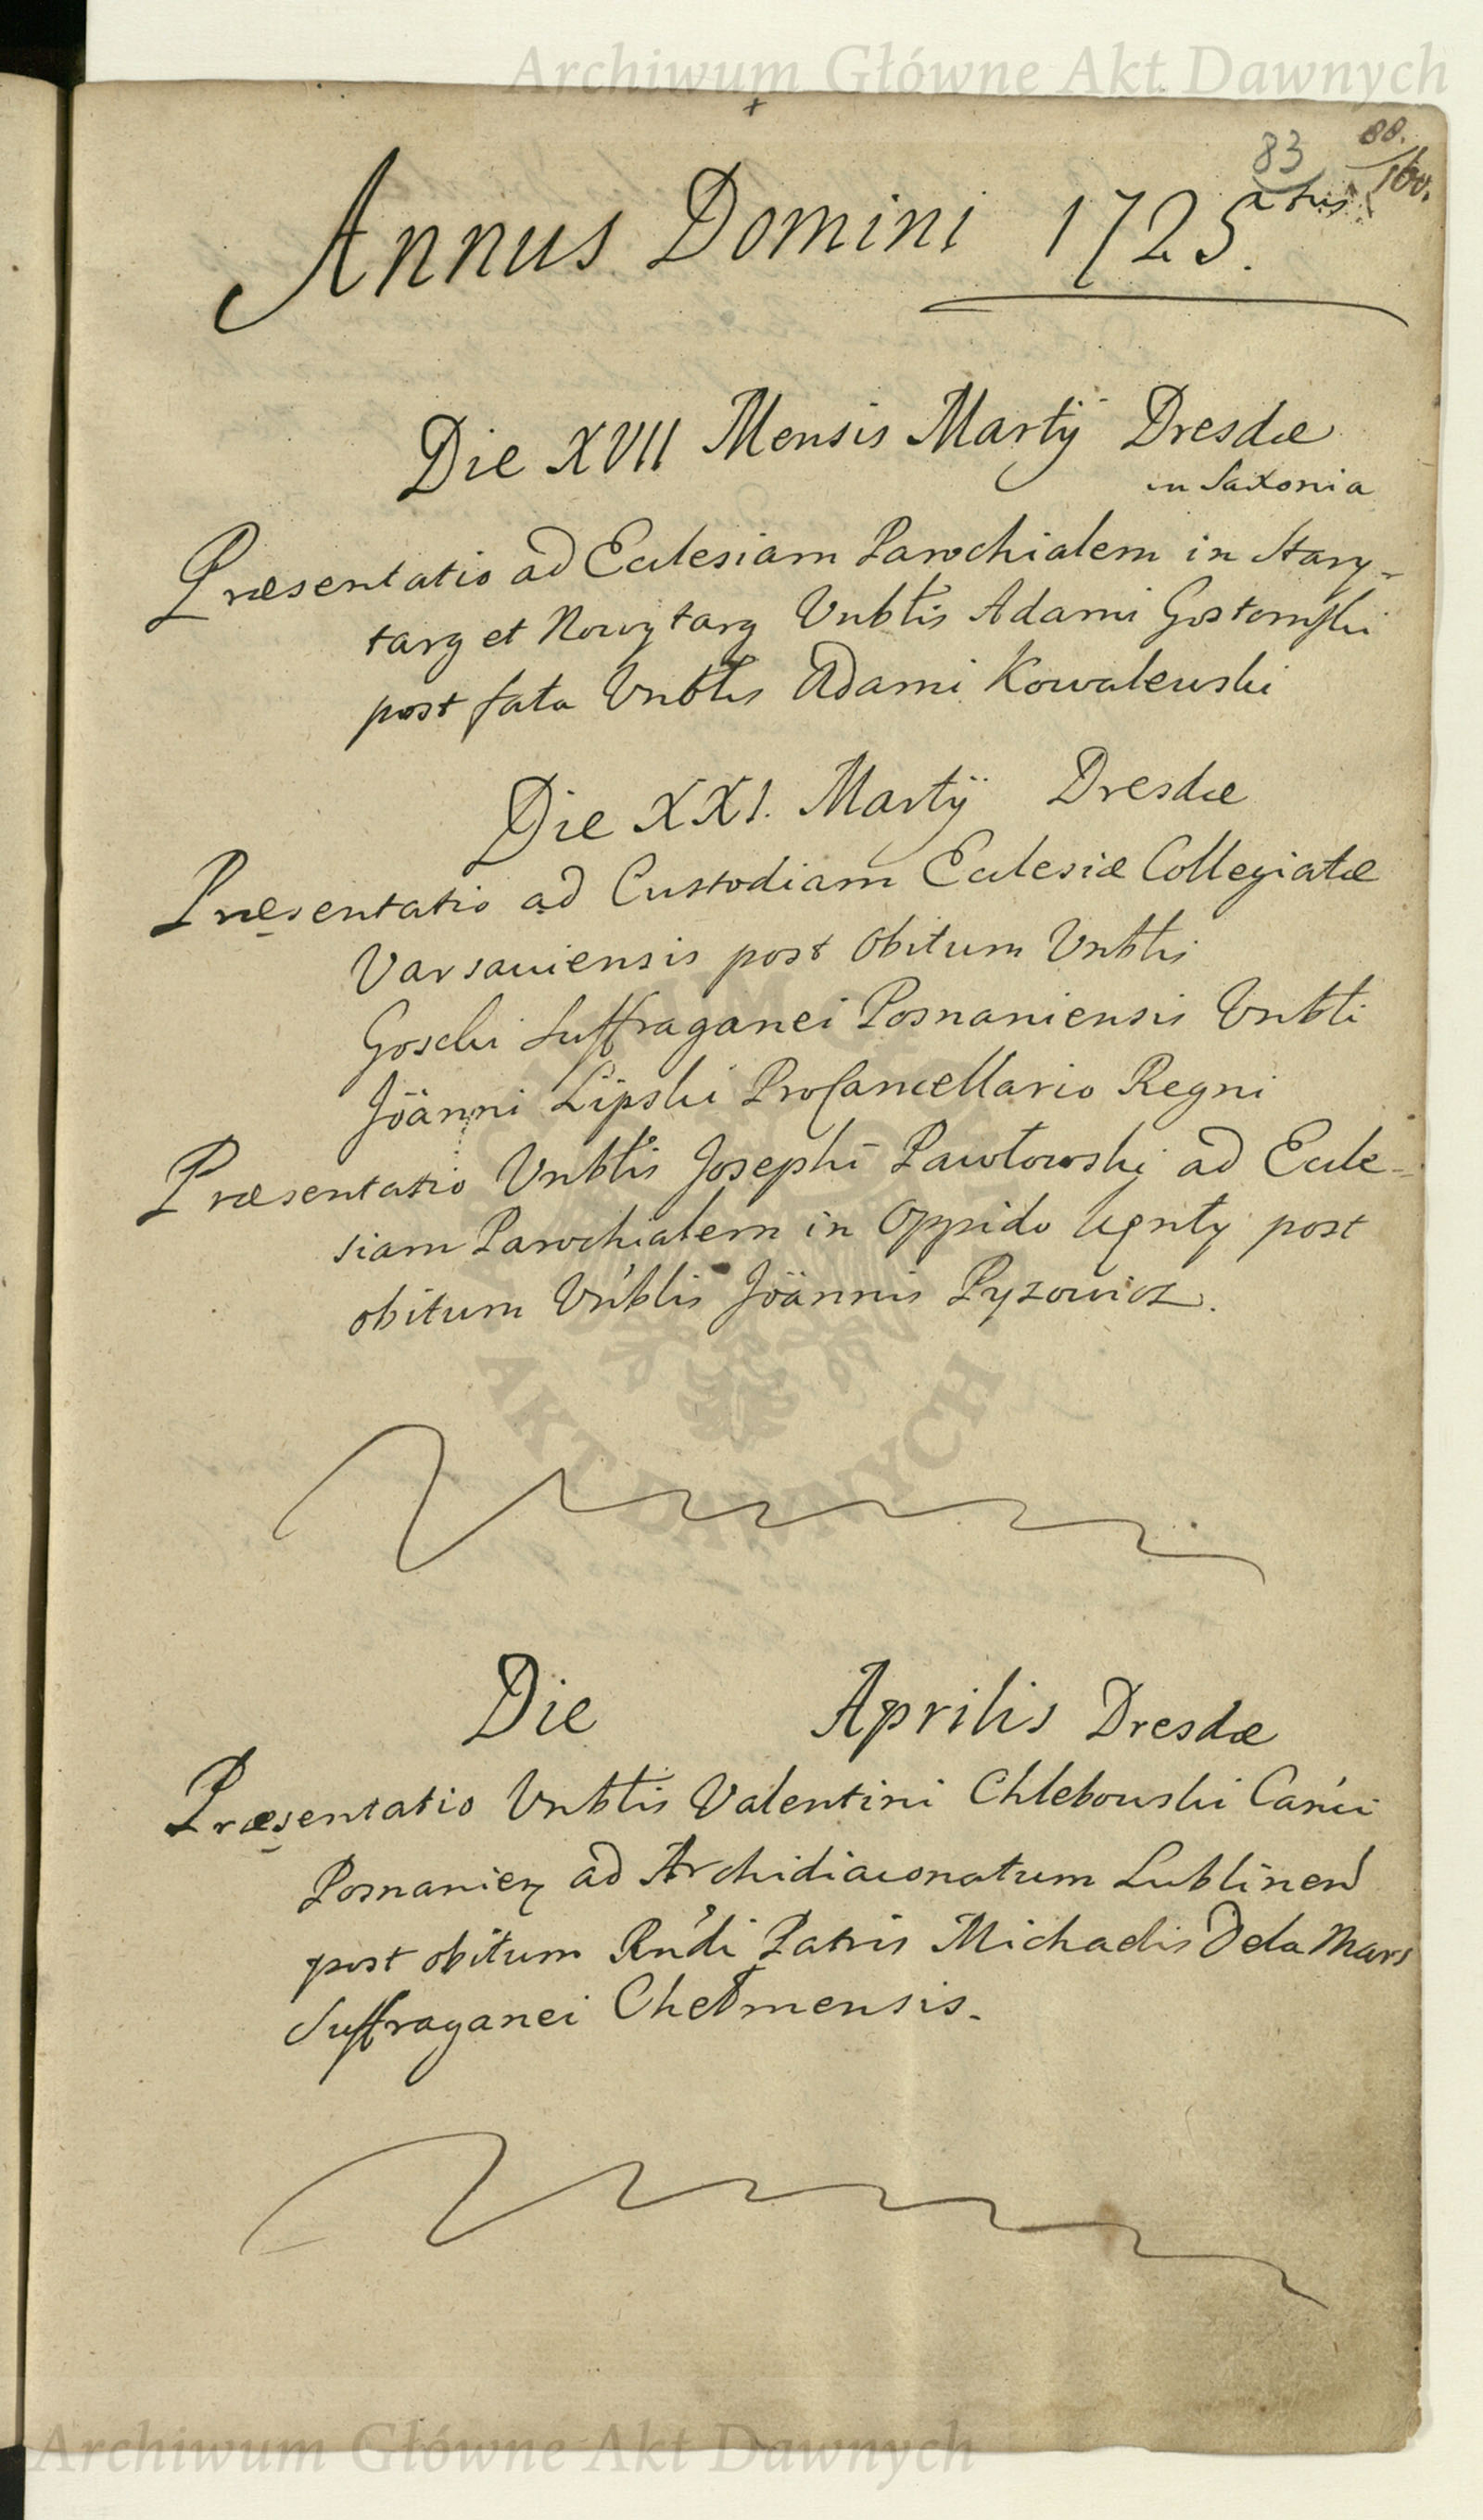 Archiwum Główne Akt Dawnych
83 88.
Annus Domini 1725.
Die XVII Mensis Martÿ Dresdæ
in Saxonia
Præsentatio ad Ecclesiam Parochialem in Stary-
targ et Nowytarg Vnblis Adami Gostomski
post fata Vnblis Adami Kowalewski
Die XXI. Martÿ Dresdæ
Præsentatio ad Custodiam Ecclesiæ Collegiatæ
Varsauiensis post Obitum Vnblis
Goscki Suffraganei Posnaniensis Vnbli
Jöänni Lipski ProCancellario Regni
Præsentatio Vnblis Josephi Pawłowski ad Eccle-
siam Parochialem in Oppido post
obitum Vnblis Jöännis Pyzowicz.
ARCHIWUM GŁÓWNE AKT DAWNYCH
Die Aprilis Dresdæ
Præsentatio Vnblis Valentini Chlebowski Canci
Posnanien ad Archidiaconatum Lublinen
post obitum Rndi Patris Michaelis Dela Mars
Suffraganei Chełmensis.
Archiwum Główne Akt Dawnych